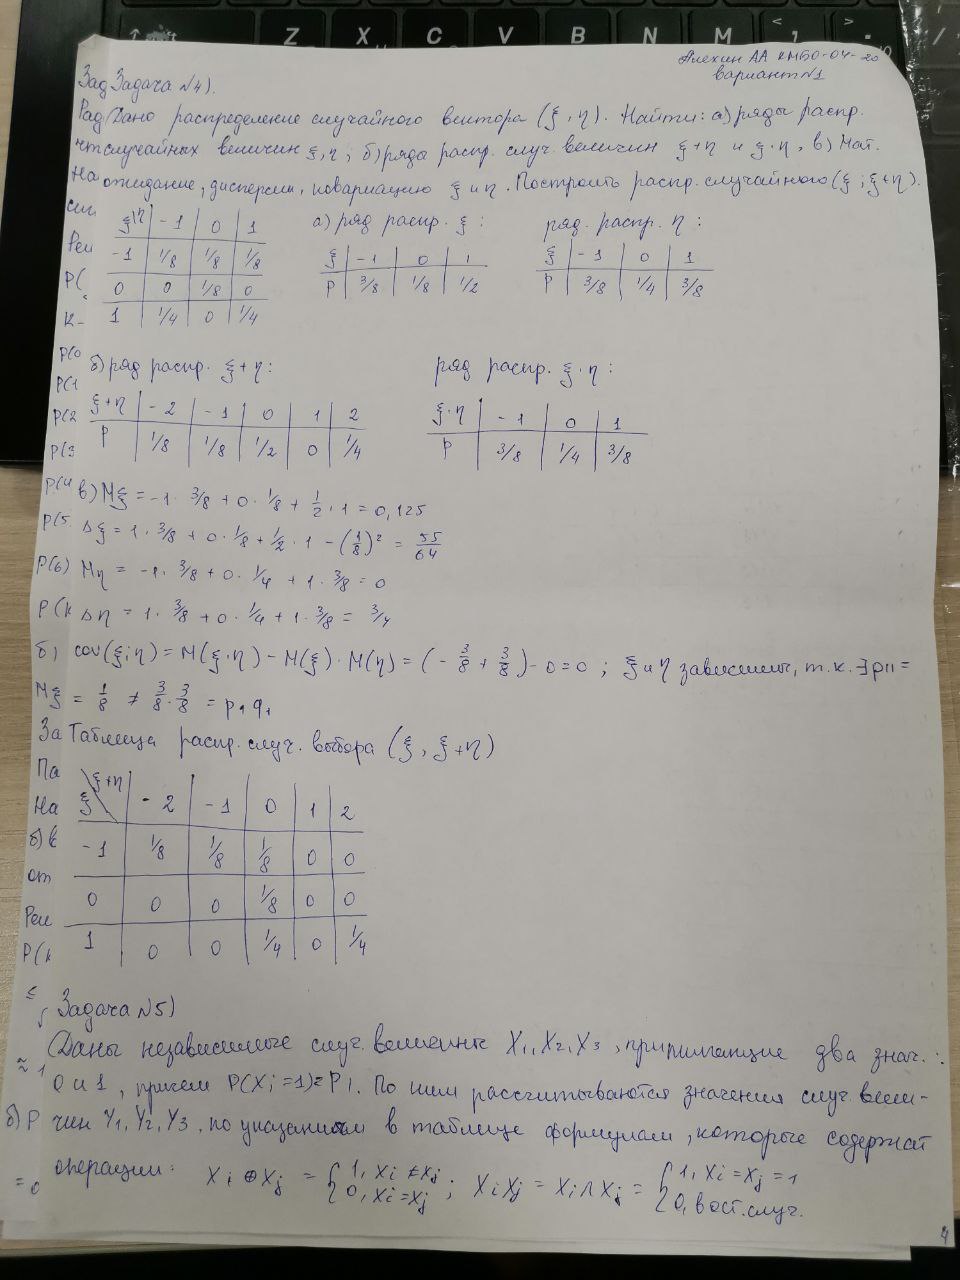 Алехин АА КМБО-04-20
вариант №1
Зад Задача №4).
Рад (Дано распределение случайного вектора (ξ, η). Найти: а) ряды распр.
случайных величин ξ, η; б) ряда распр. случ. величин ξ+η и ξ·η, в) Мат.
На ожидание, дисперсии, ковариацию ξ и η. Построить распр. случайного (ξ; ξ+η).
а) ряд распр. ξ: ряд. распр. η:
ξ\η | -1 | 0 | 1
-1 | 1/8 | 1/8 | 1/8
0 | 0 | 1/8 | 0
1 | 1/4 | 0 | 1/4
ξ | -1 | 0 | 1
P | 3/8 | 1/8 | 1/2
ξ | -1 | 0 | 1
P | 3/8 | 1/4 | 3/8
Реш
P(
K-
P(0
P(1
P(2
P(3
б) ряд распр. ξ+η: ряд распр. ξ·η:
ξ+η | -2 | -1 | 0 | 1 | 2
P | 1/8 | 1/8 | 1/2 | 0 | 1/4
ξ·η | -1 | 0 | 1
P | 3/8 | 1/4 | 3/8
P(4 в) Mξ = -1 · 3/8 + 0 · 1/8 + 1/2 · 1 = 0,125
P(5. Δξ = 1 · 3/8 + 0 · 1/8 + 1/2 · 1 - (1/8)² = 55/64
P(6) Mη = -1 · 3/8 + 0 · 1/4 + 1 · 3/8 = 0
P(k Δη = 1 · 3/8 + 0 · 1/4 + 1 · 3/8 = 3/4
б) cov(ξ; η) = M(ξ·η) - M(ξ) · M(η) = (- 3/8 + 3/8) - 0 = 0 ; ξ и η зависимы, т.к. ∃ p11 =
Mξ = 1/8 ≠ 3/8 · 3/8 = p₁q₁
За Таблица распр. случ. выбора (ξ, ξ+η)
Па
На
б) k
от
Реш
P(k
ξ\ξ+η | -2 | -1 | 0 | 1 | 2
-1 | 1/8 | 1/8 | 1/8 | 0 | 0
0 | 0 | 0 | 1/8 | 0 | 0
1 | 0 | 0 | 1/4 | 0 | 1/4
Задача №5)
(Даны независимые случ. величины X₁, X₂, X₃, принимающие два знач. :
≈ 1 0 и 1, причем P(Xi = 1) = Pi. По ним рассчитываются значения случ. вели-
б) P чин Y₁, Y₂, Y₃. по указанным в таблице формулам, которые содержат
= 0 операции: Xi ⊕ Xj = {1, Xi ≠ Xj; 0, Xi = Xj ; XiXj = Xi ∧ Xj = {1, Xi = Xj = 1; 0, в ост. случ.
4